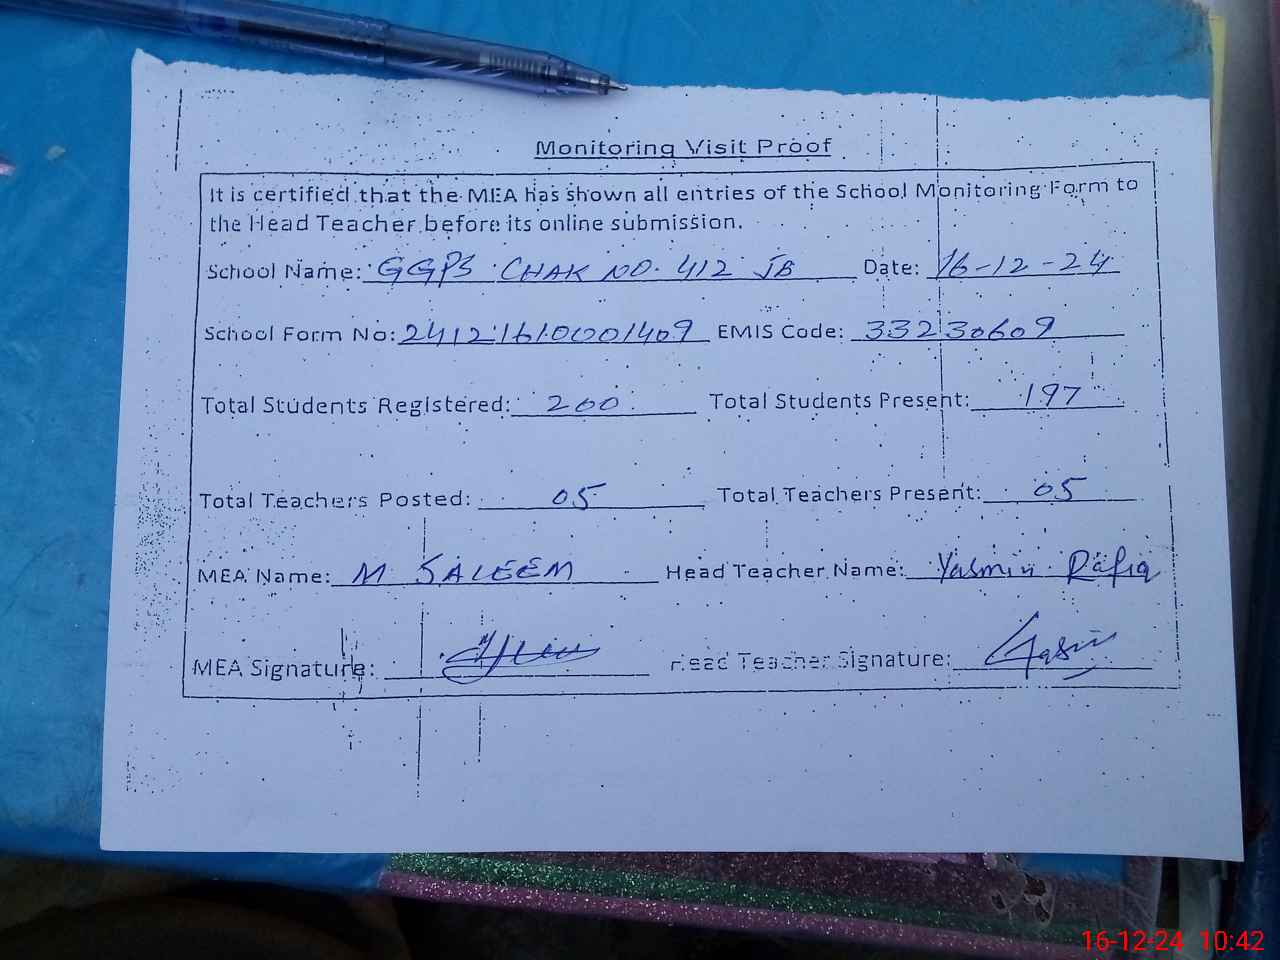 Monitoring Visit Proof
It is certified that the MEA has shown all entries of the School Monitoring Form to
the Head Teacher before its online submission.
School Name: GGPS CHAK NO. 412 JB Date: 16-12-24
School Form No: 24121610001409 EMIS Code: 33230609
Total Students Registered: 200 Total Students Present: 197
Total Teachers Posted: 05 Total Teachers Present: 05
MEA Name: M SALEEM Head Teacher Name: Yasmin Rafiq
MEA Signature: Head Teacher Signature: Yasmin
16-12-24 10:42